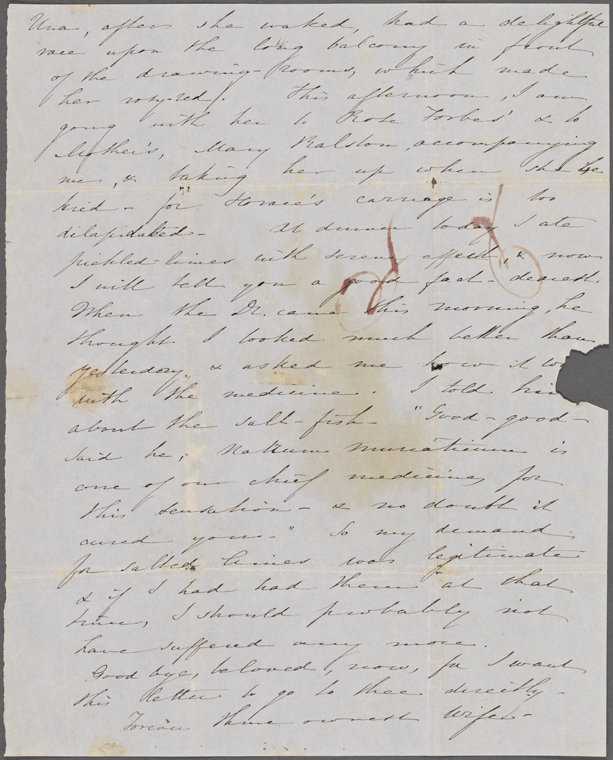 Una, after she waked, had a delightful
race upon the long balcony in front
of the drawing-rooms, which made
her rosy-red. This afternoon, I am
going with her to Rose Forbes' & to
Mother's, Mary Ralston accompanying
me, & taking her up when she is
tired - for Horace's carriage is too
dilapidated - At dinner today I ate
pickled-limes with serene effect, & now
I will tell you a good fact - dearest.
When the Dr. came this morning, he
thought I looked much better than
yesterday, & asked me how it
with the medicine. I told him
about the salt-fish - "Good - good -
said he, Natrum muriaticum is
one of our chief medicines for
this sensation - & no doubt it
cured you -" So my demand
for salted limes was legitimate
& if I had had them at that
time, I should probably not
have suffered any more.
Good bye, beloved, now, for I want
this letter to go to thee directly -
thine ownest wife -